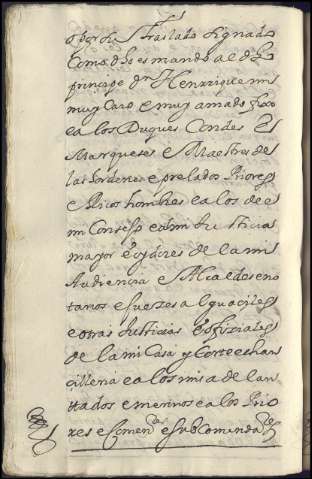 o por su Traslado signado
Como dho es mando al dho
principe dn Henrrique mi
muy Caro e muy amado fixo
e a los Duques Condes
Marqueses e Maestres de
las hordenes e prelados Priores
e Ricos hombres e a los de el
mi Consejo e a mi Justicia
mayor e oydores de la mi
Audiencia e Alcaldes e no
tarios e Juezes Alguaciles
e otras Justicias e ofiziales
de la mi Casa y Corte e chan
cilleria e a los mis adelan
ttados e merinos e a los Prio
res e Comendes e sub Comendes